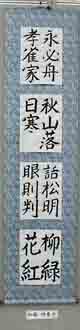 永必舟
孝雀家
秋山落
日寒
詰松明
眼則判
柳緑
花紅